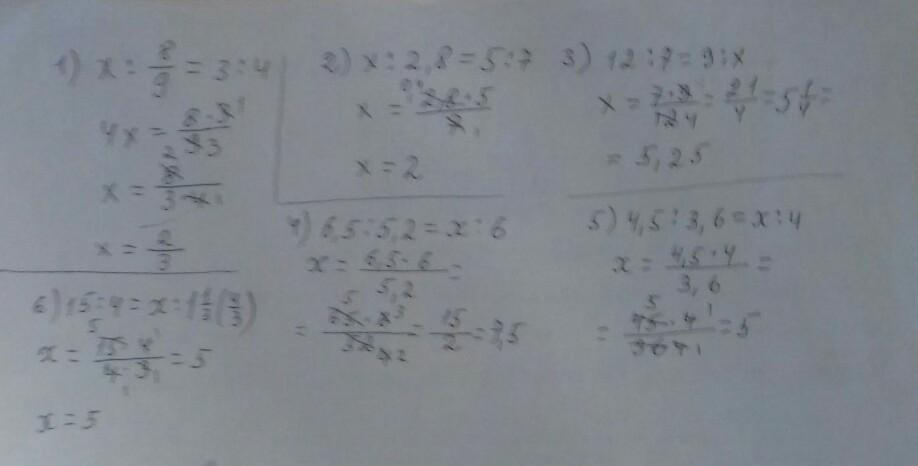 1) x : 8/9 = 3 : 4
4x = 8·3/9
x = 8/3·4
x = 2/3
2) x : 2,8 = 5 : 7
x = 2,8·5/7
x = 2
3) 12 : 7 = 9 : x
x = 7·9/12 = 21/4 = 5 1/4 =
= 5,25
4) 6,5 : 5,2 = x : 6
x = 6,5·6/5,2 =
= 65·6/52 = 15/2 = 7,5
5) 4,5 : 3,6 = x : 4
x = 4,5·4/3,6 =
= 45·4/36 = 5
6) 15 : 4 = x : 1 1/3 (4/3)
x = 15·4/4·3 = 5
x = 5